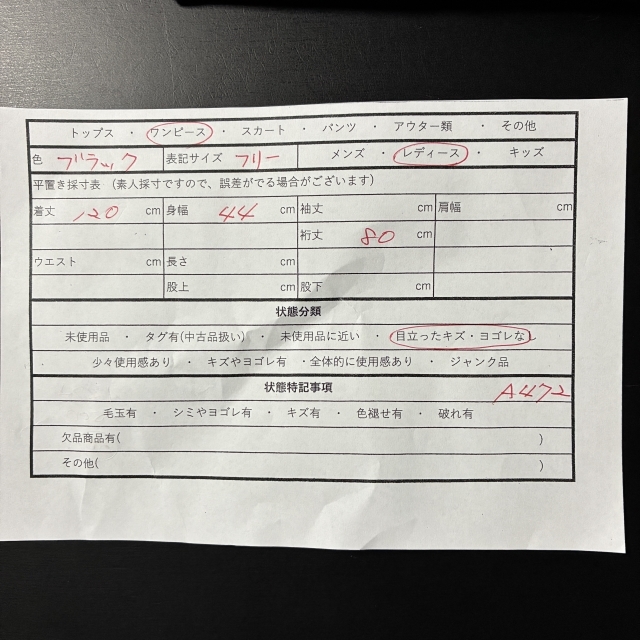 トップス ・ ワンピース ・ スカート ・ パンツ ・ アウター類 ・ その他
色 ブラック 表記サイズ フリー メンズ ・ レディース ・ キッズ
平置き採寸表 (素人採寸ですので、誤差がでる場合がございます)
着丈 120 cm 身幅 44 cm 袖丈 cm 肩幅 cm
裄丈 80 cm
ウエスト cm 長さ cm
股上 cm 股下 cm
状態分類
未使用品 ・ タグ有(中古品扱い) ・ 未使用品に近い ・ 目立ったキズ・ヨゴレなし
少々使用感あり ・ キズやヨゴレ有 ・全体的に使用感あり ・ ジャンク品
状態特記事項 A472
毛玉有 ・ シミやヨゴレ有 ・ キズ有 ・ 色褪せ有 ・ 破れ有
欠品商品有( )
その他( )